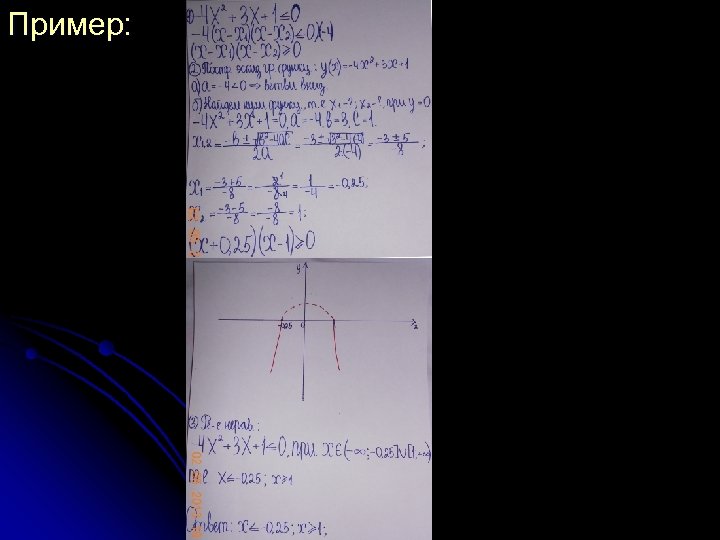 Пример:
-4x² + 3x + 1 ≤ 0
-4(x-x₁)(x-x₂) ≤ 0 |(-4)
(x-x₁)(x-x₂) ≥ 0
② эскиз гр. функц: y(x) = -4x² + 3x + 1
а) a = -4 < 0 ⇒ ветви вниз
б) Найдем нули функц, т.е x₁-?; x₂-?, при y=0
-4x² + 3x + 1 = 0, a = -4, b = 3, c = 1.
x₁,₂ = (-b ± √(b²-4ac))/2a = = (-3 ± 5)/-8;
x₁ = (-3+5)/-8 = = 1/-4 = -0,25;
x₂ = (-3-5)/-8 = -8/-8 = 1;
(x+0,25)(x-1) ≥ 0
y
-0,25 0 x
③ Р-е нерав:
-4x² + 3x + 1 ≤ 0, при x∈(-∞; -0,25]∪[1; +∞)
т.е x ≤ -0,25; x ≥ 1
Ответ: x ≤ -0,25; x ≥ 1;